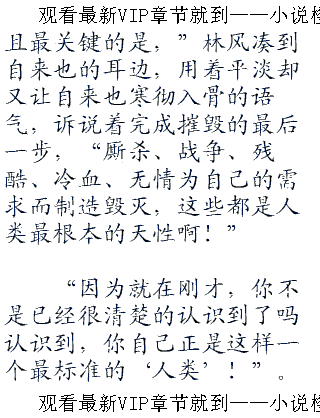 观看最新VIP章节就到——小说
且最关键的是，”林风凑到
自来也的耳边，用着平淡却
又让自来也寒彻入骨的语
气，诉说着完成摧毁的最后
一步，“厮杀、战争、残
酷、冷血、无情为自己的需
求而制造毁灭，这些都是人
类最根本的天性啊！”
“因为就在刚才，你不
是已经很清楚的认识到了吗
认识到，你自己正是这样一
个最标准的‘人类’！”。
观看最新VIP章节就到——小说